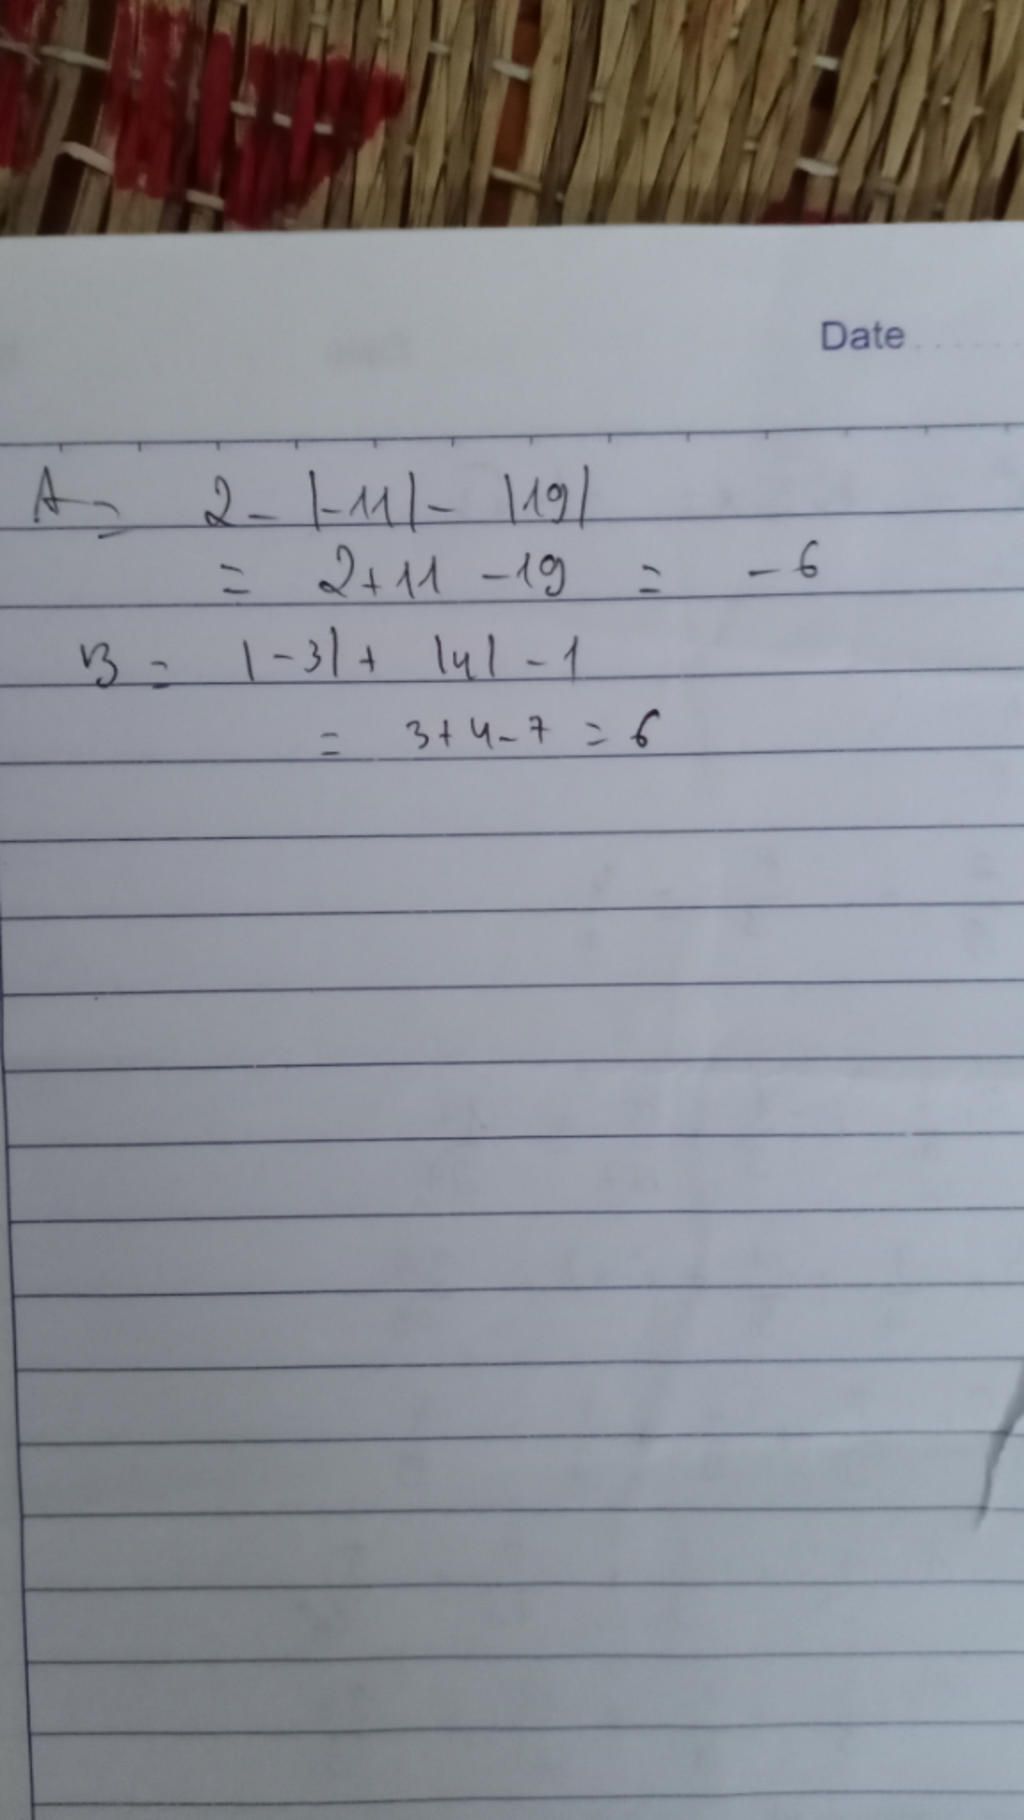 Date
A = 2 - |-11| - |19|
= 2 + 11 - 19 = - 6
B = |-3| + |4| - 1
= 3 + 4 - 7 = 6